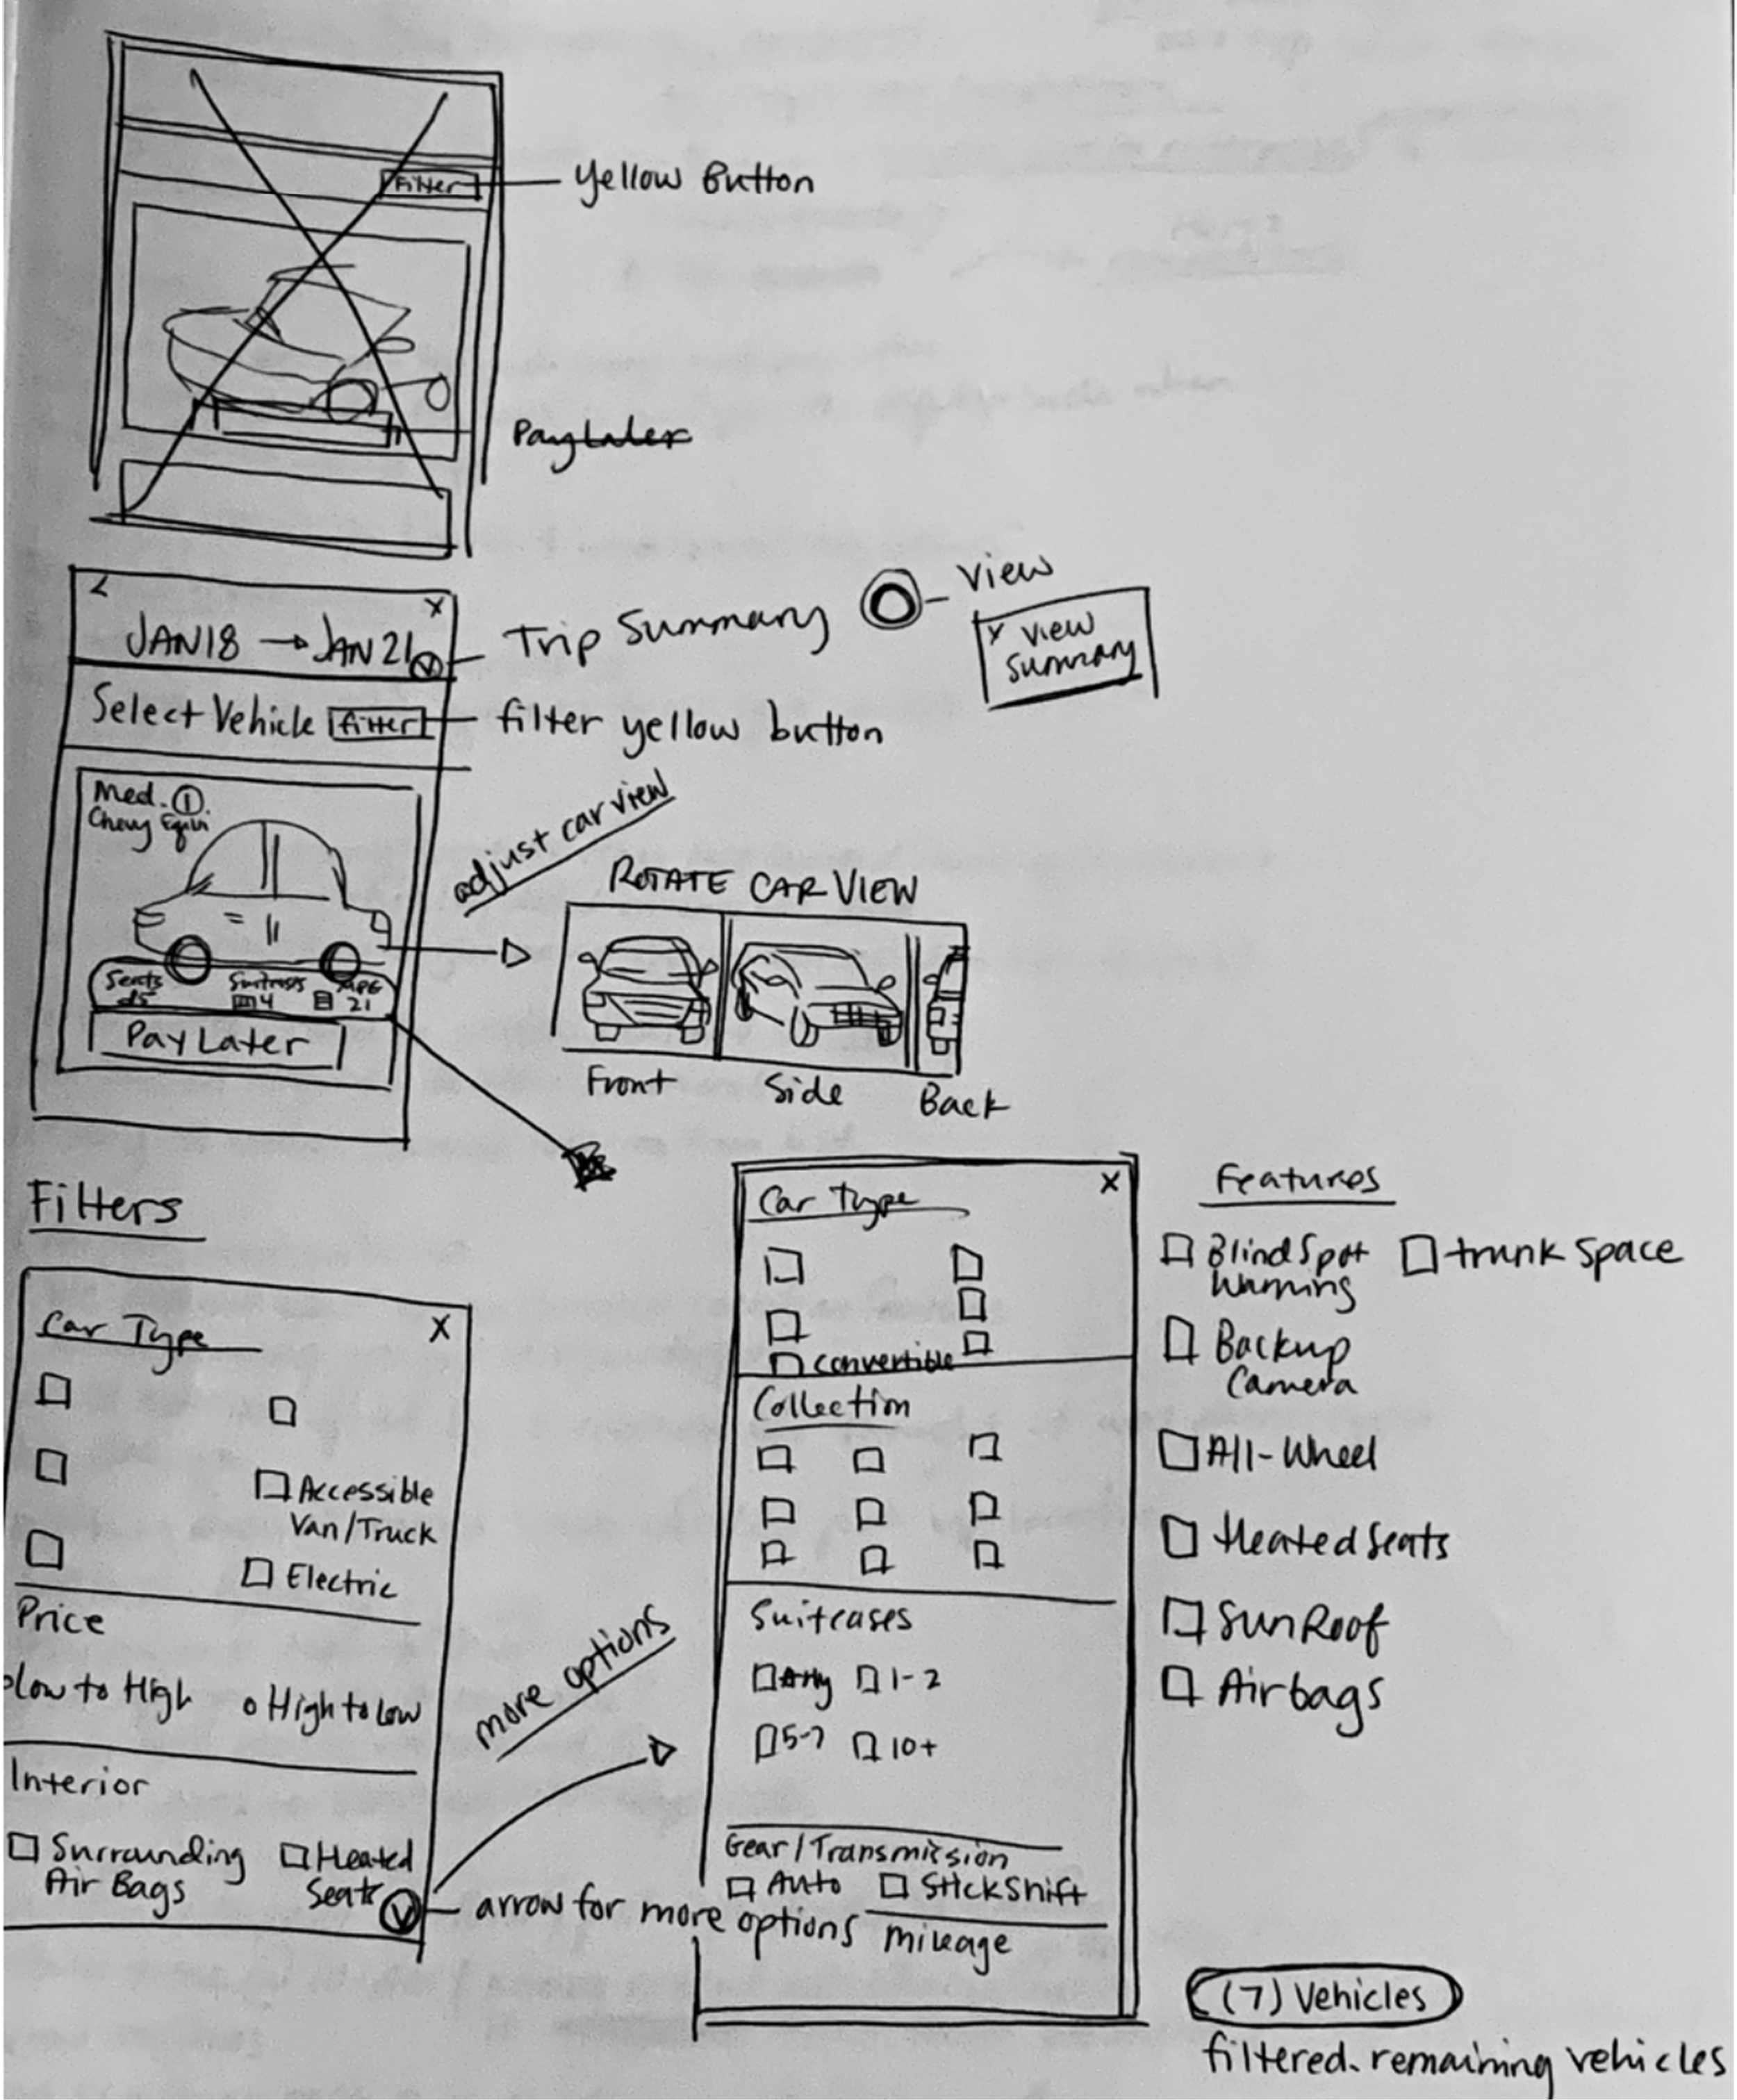 Filter
Yellow Button
Pay Later
<
X
JAN 18 → JAN 21
Trip Summary
View
X View
Summary
Select Vehicle
filter
filter yellow button
Med.
Chevy
adjust car view
ROTATE CAR VIEW
Seats
Suitcases
MPG
4
21
Pay Later
Front
Side
Back
Filters
Car Type
X
Accessible
Van/Truck
Electric
Price
low to High
High to Low
Interior
Surrounding
Air Bags
Heated
Seats
arrow for more options
more options
Car Type
X
Convertible
Collection
Suitcases
Any
1-2
5-7
10+
Gear/Transmission
Auto
Stick Shift
Mileage
Features
Blind Spot
Warning
trunk space
Backup
Camera
All-Wheel
Heated Seats
SunRoof
Airbags
(7) Vehicles
filtered. remaining vehicles